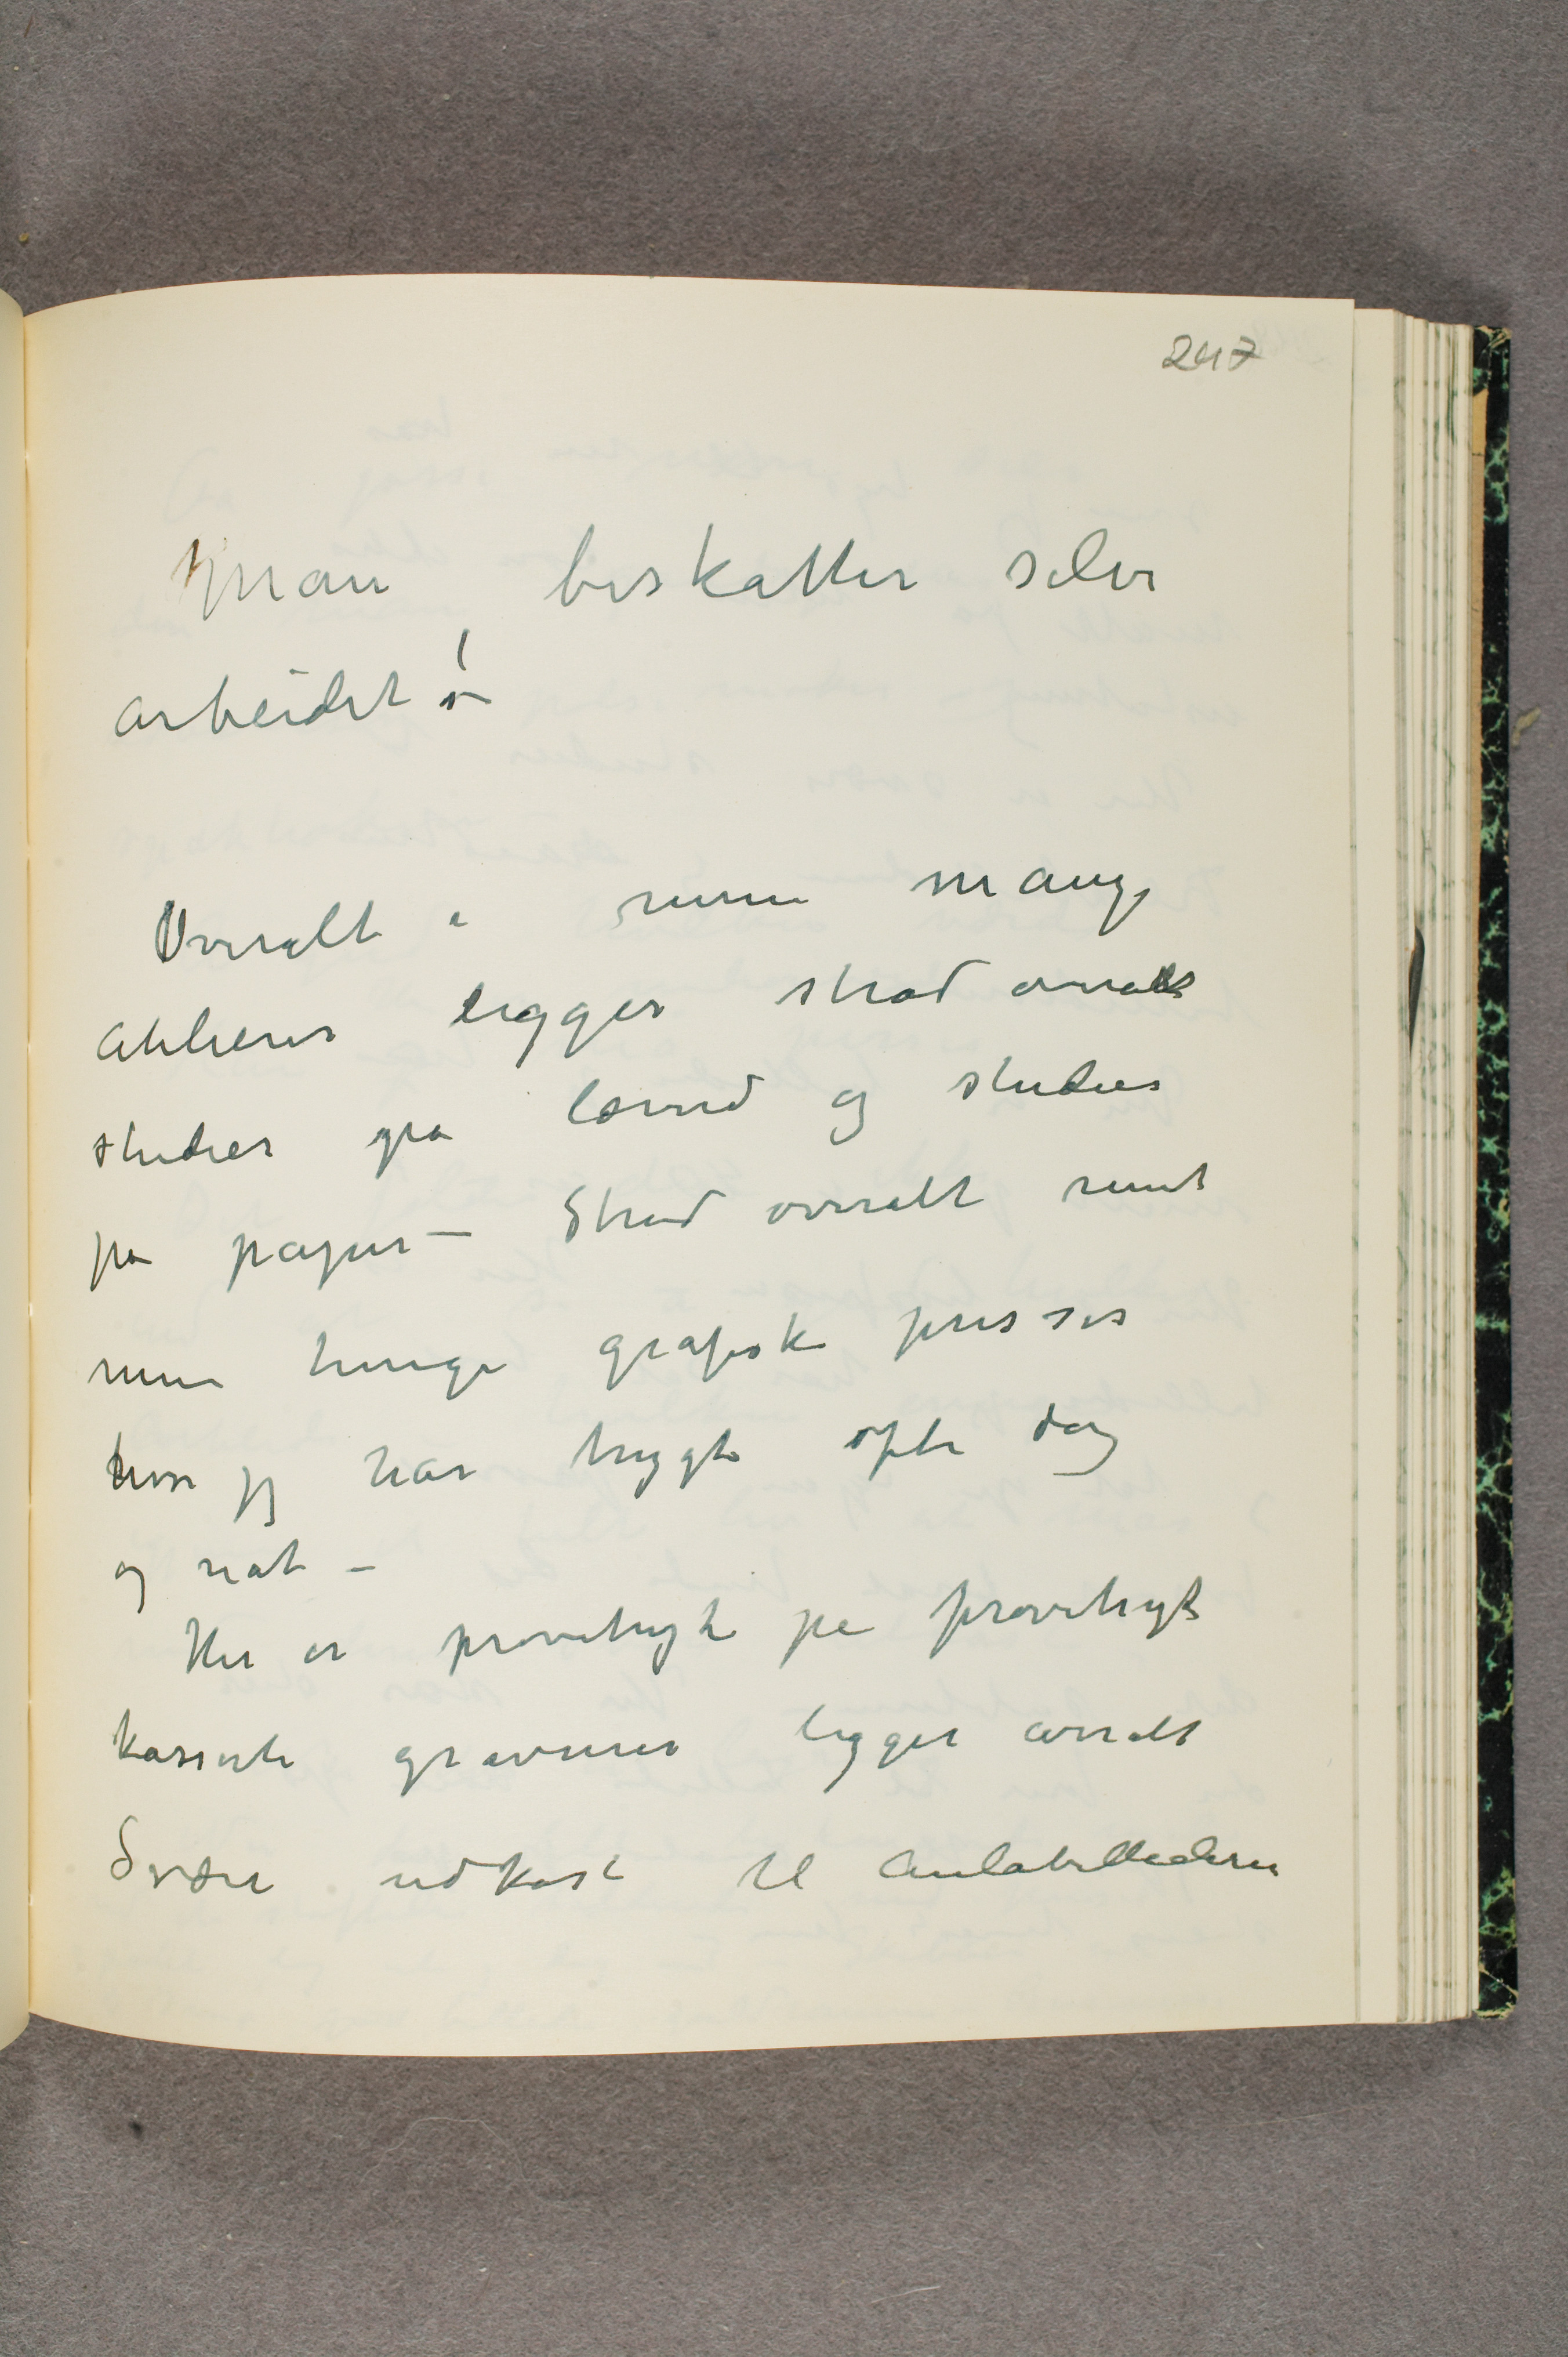 247
Man beskatter selve
arbeidet! –
Overalt i mine mange
atelierer ligger strød overalt
studier på lærred og studier
på papir – Strød overalt rundt
mine tunge grafiske presser
hvor jeg har trygt ofte dag
og nat –
Her er prøvetryk på prøvetryk
kasserte gravurer ligger overalt
Svære udkast til Aulabillederne